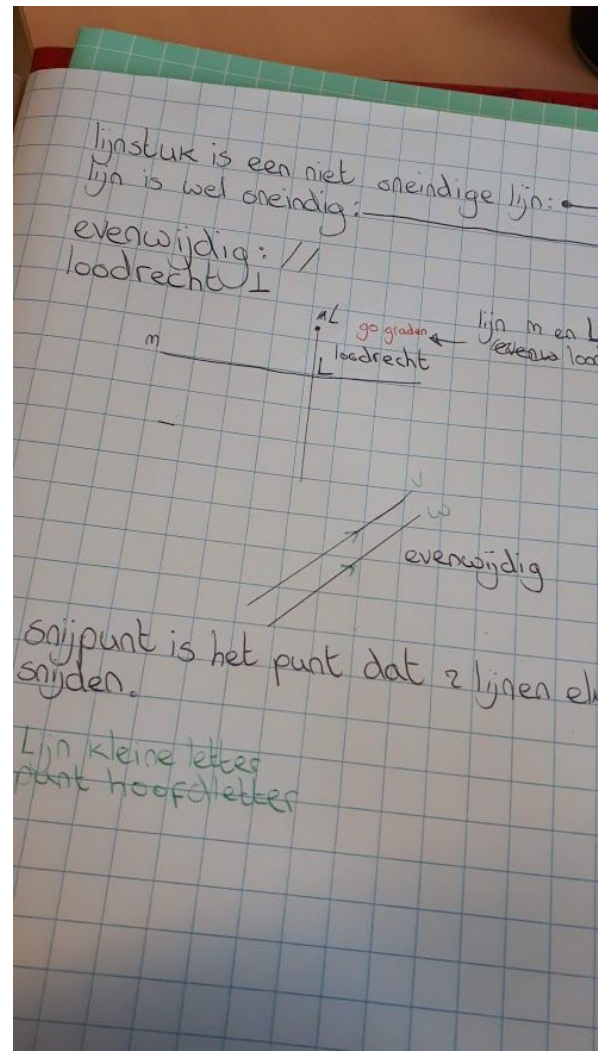 lijnstuk is een niet oneindige lijn:
lijn is wel oneindig:
evenwijdig: //
loodrecht ⊥
L
90 graden
lijn m en L
m
loodrecht
evenw loo
v
w
evenwijdig
snijpunt is het punt dat 2 lijnen el
snijden.
Lijn kleine letter
punt hoofdletter